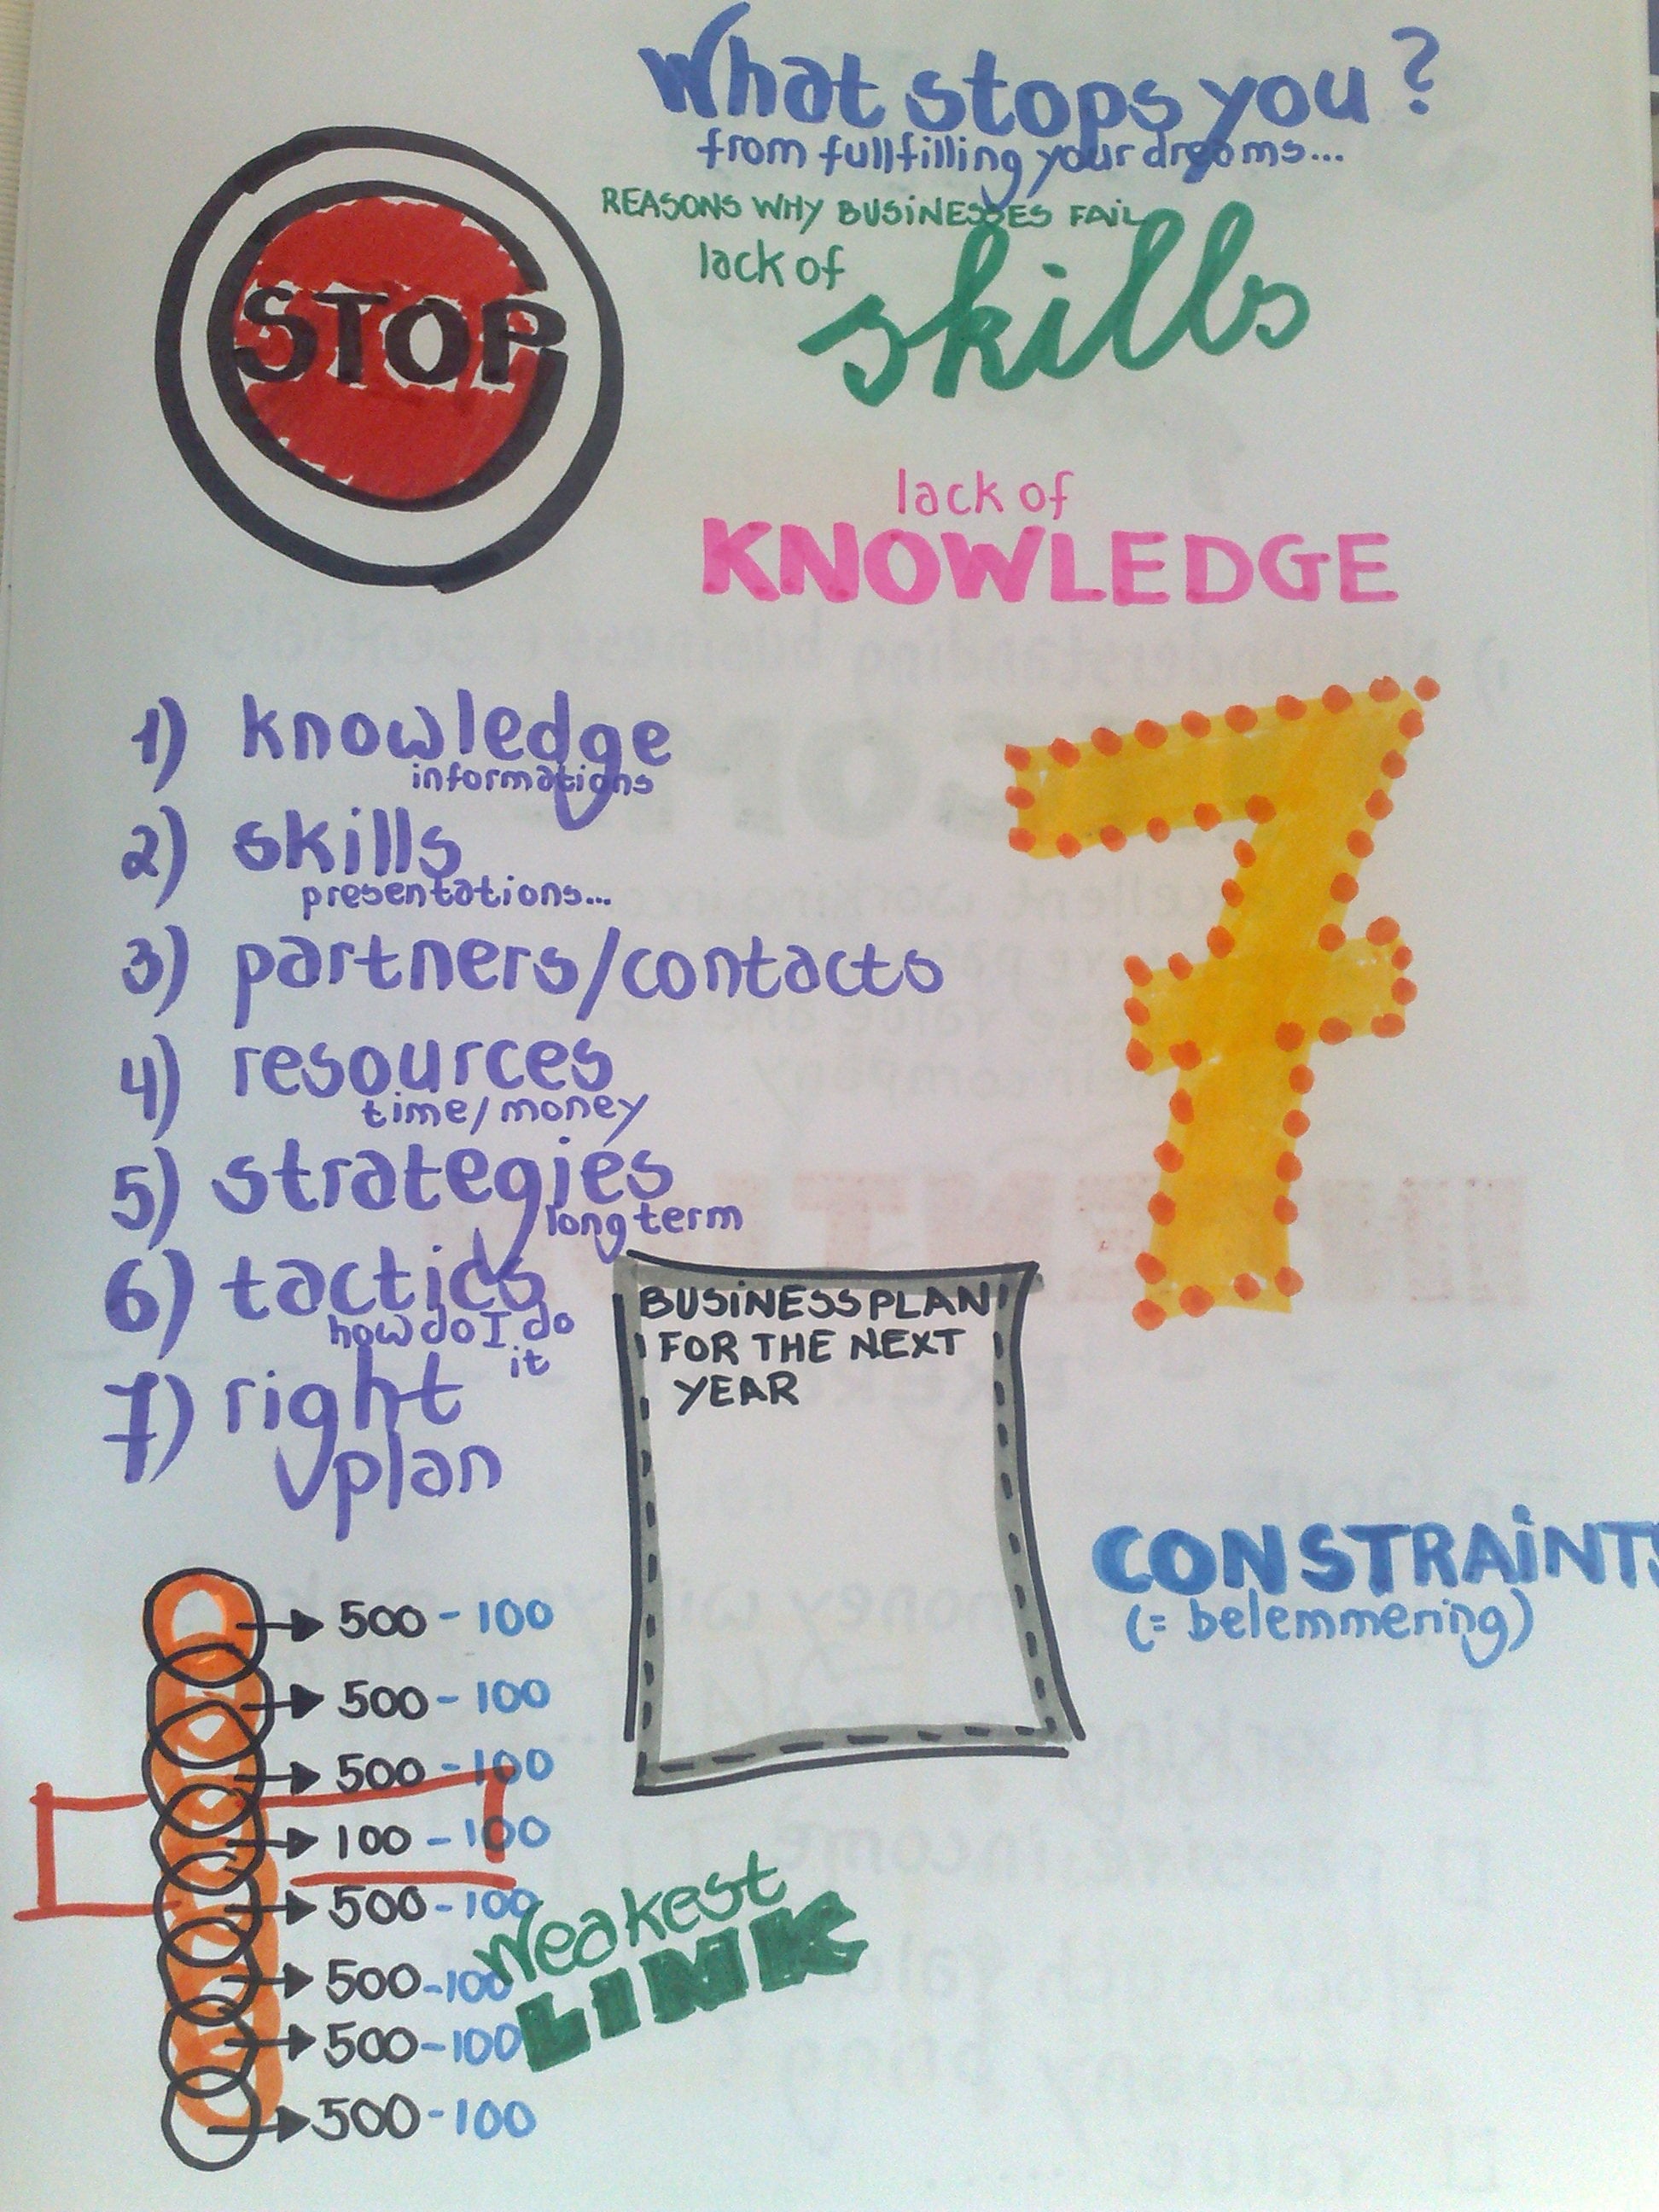 What stops you?
from fullfilling your dreams...
REASONS WHY BUSINESSES FAIL
lack of
skills
STOP
lack of
KNOWLEDGE
1) knowledge
informations
2) skills
presentations...
3) partners/contacts
4) resources
time/money
5) strategies
long term
6) tactics
how do I do
it
7) right
plan
7
BUSINESSPLAN
FOR THE NEXT
YEAR
CONSTRAINTS
(= belemmering)
500 - 100
500 - 100
500 - 100
100 - 100
500 - 100
500 - 100
500 - 100
500 - 100
Weakest
LINK